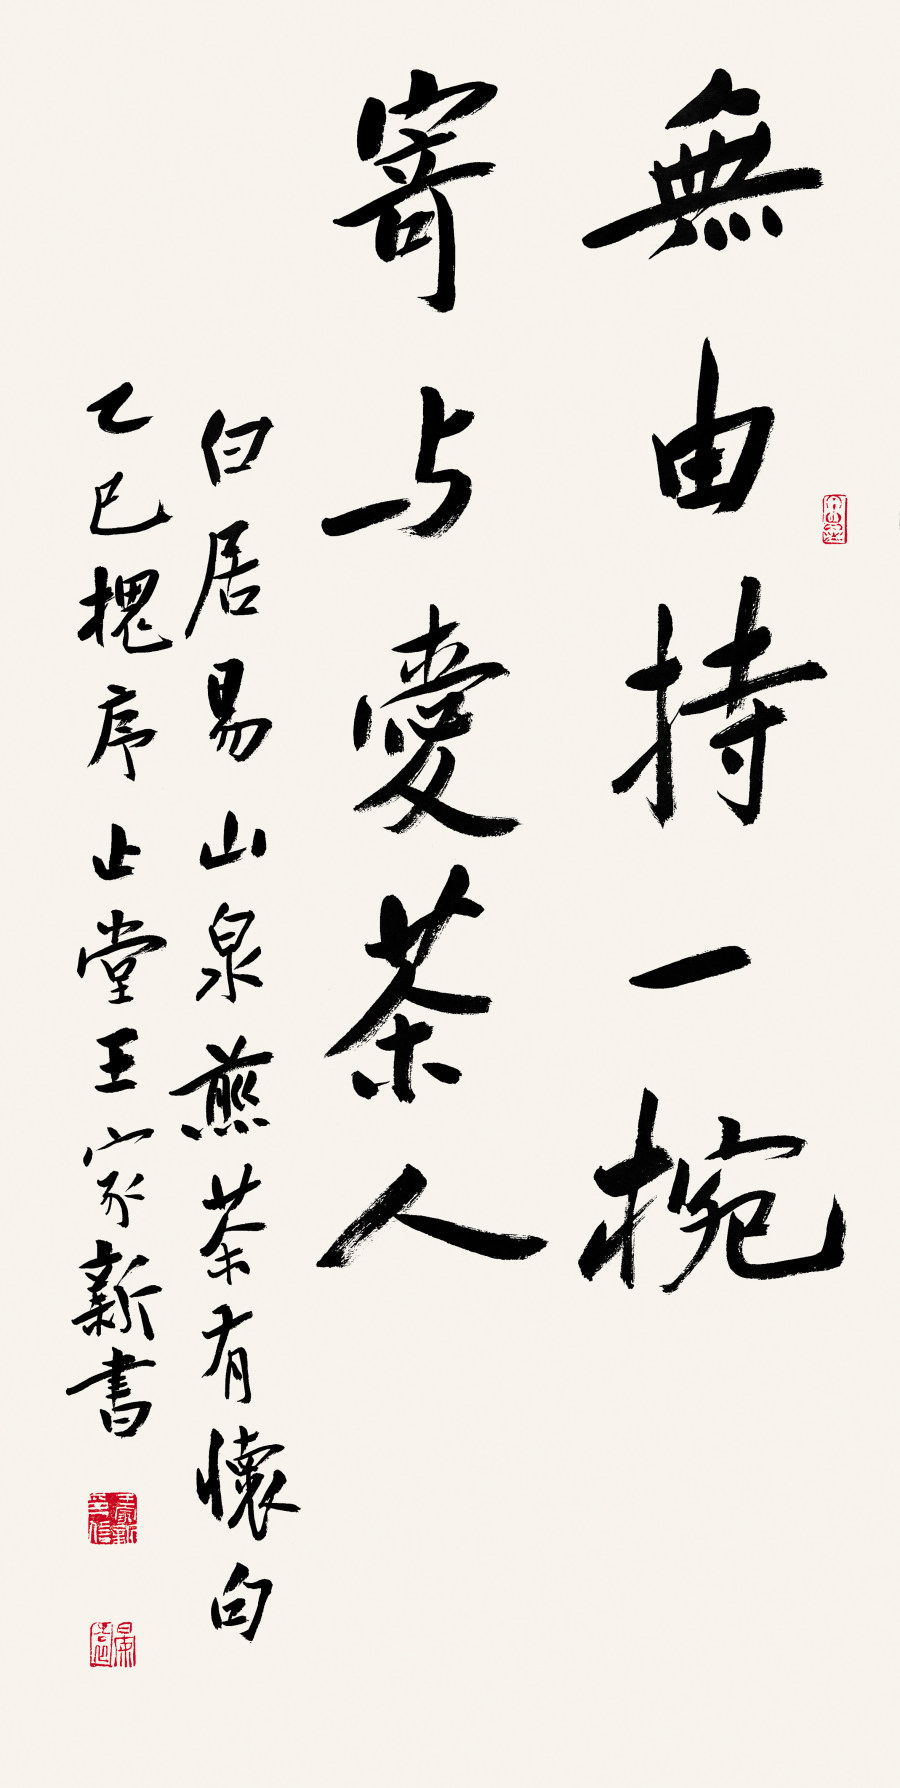 無由持一椀
寄与愛茶人
白居易山泉煎茶有懷句
乙巳槐序止堂王家新書